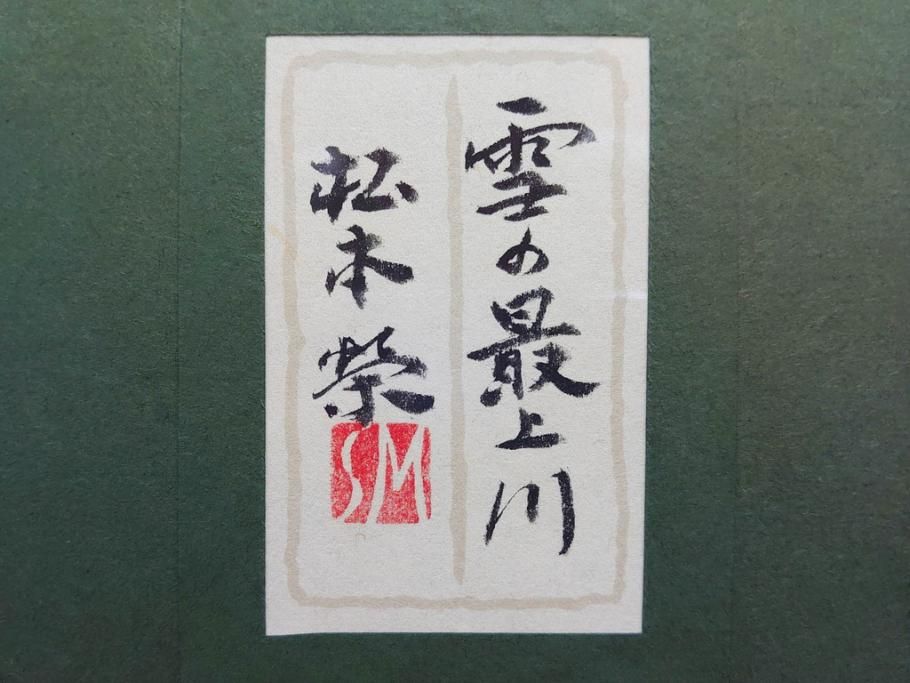 雪の最上川
松本榮
SM